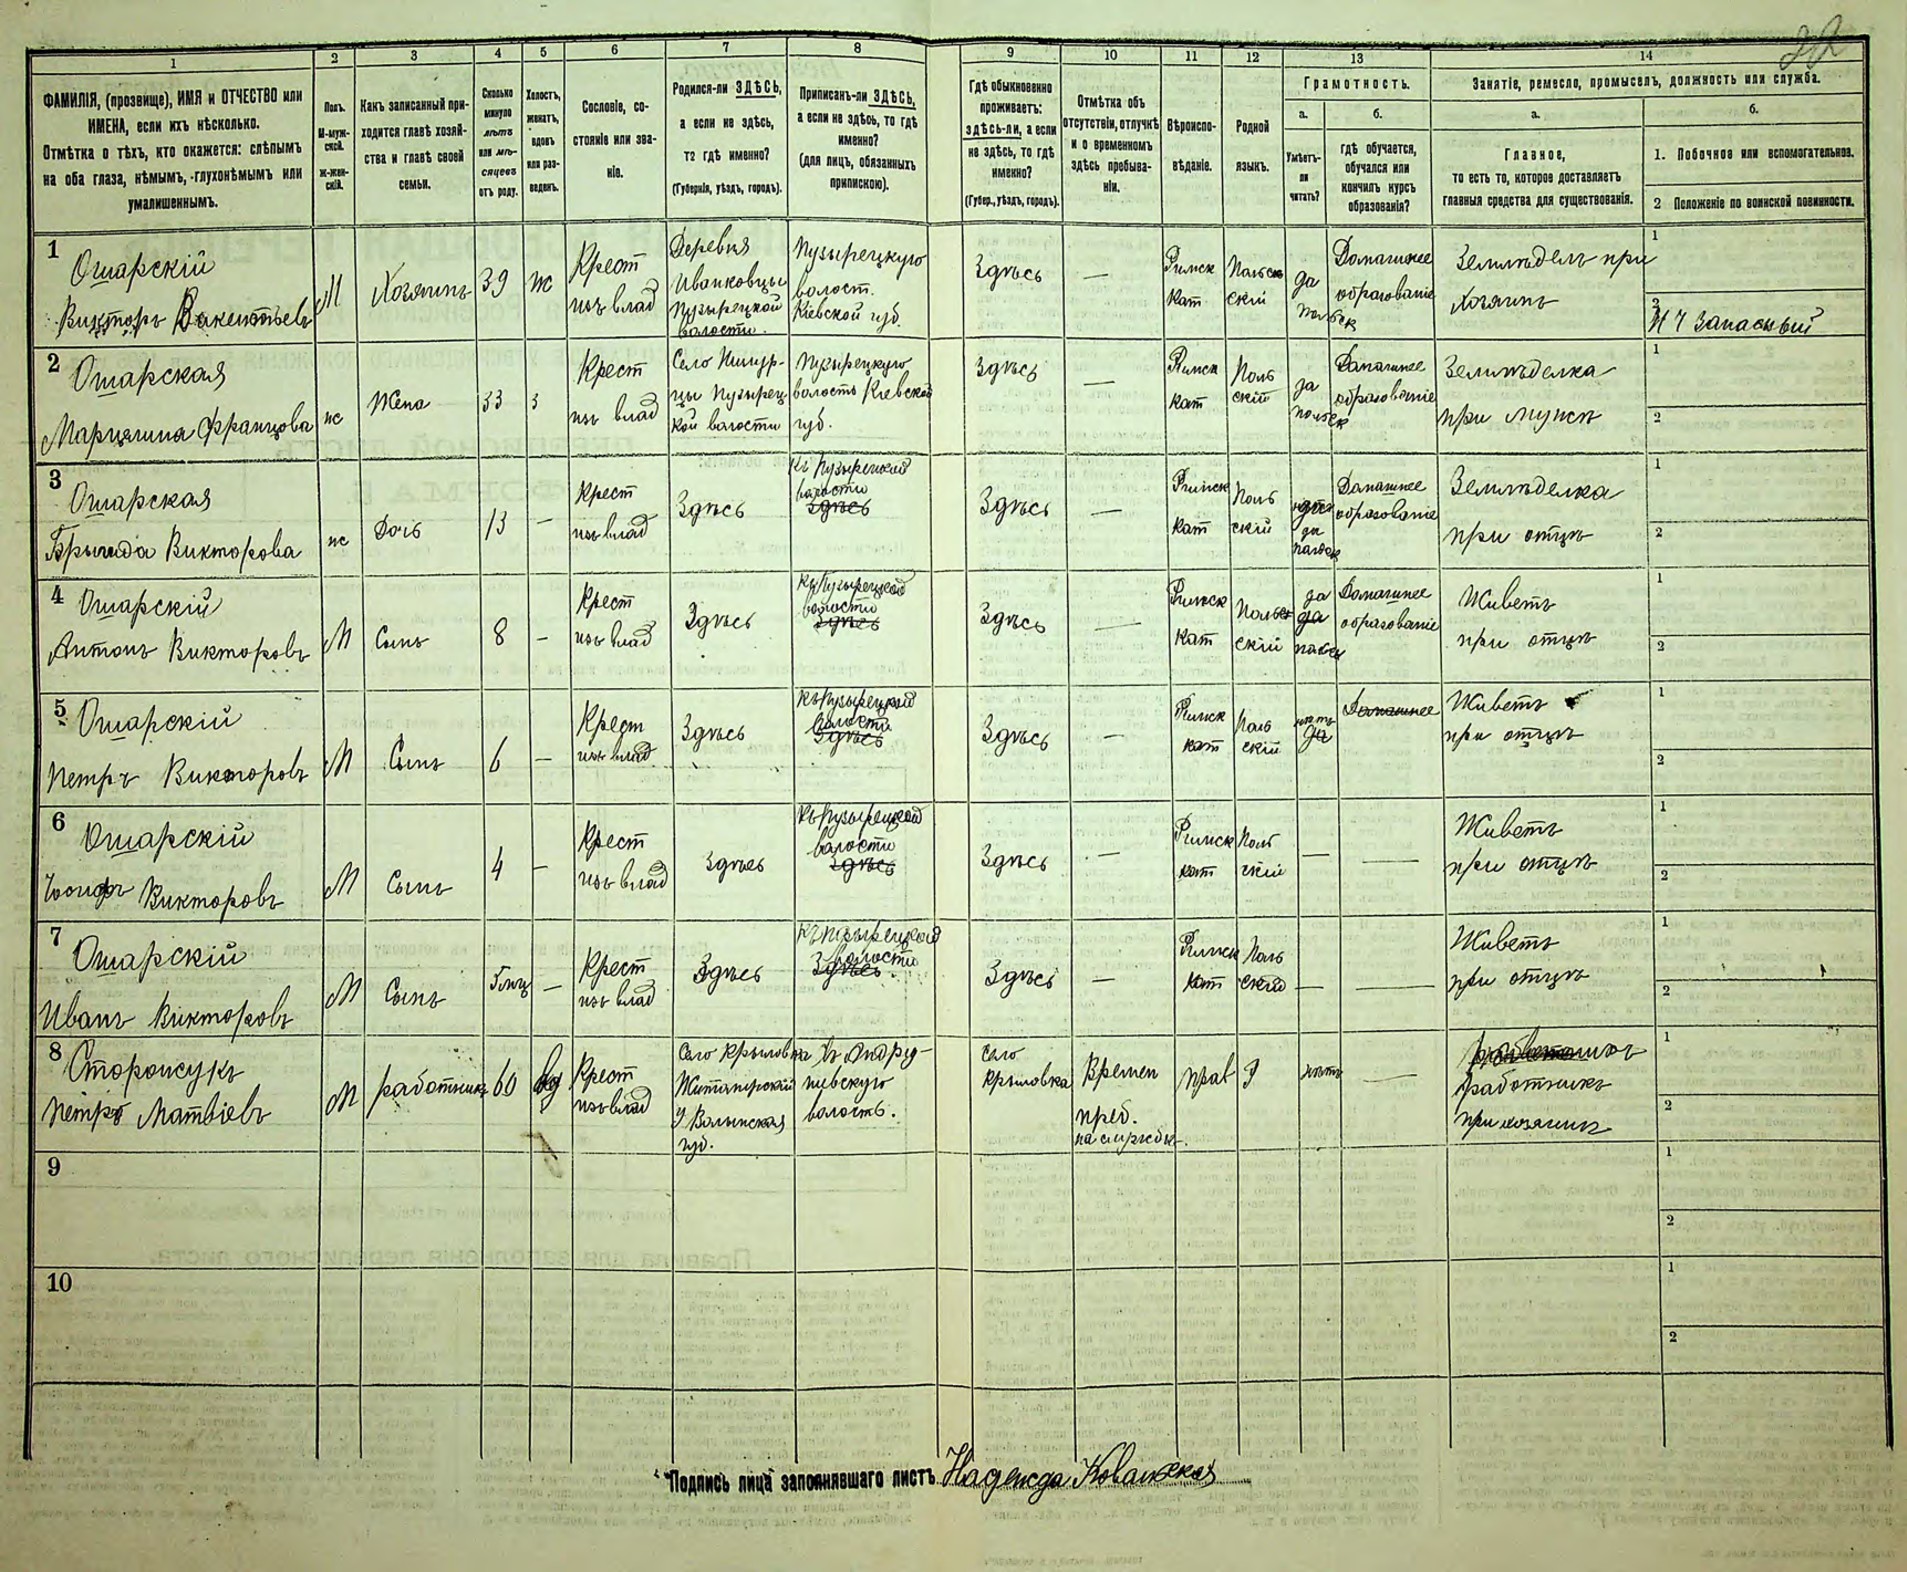 22
1 2 3 4 5 6 7 8 9 10 11 12 13 14
ФАМИЛІЯ, (прозвище), ИМЯ и ОТЧЕСТВО или
ИМЕНА, если ихъ нѣсколько.
Отмѣтка о тѣхъ, кто окажется: слѣпымъ
на оба глаза, нѣмымъ, глухонѣмымъ или
умалишеннымъ.
Полъ.
М-муж-
ской.
ж-жен-
скій.
Какъ записанный при-
ходится главѣ хозяй-
ства и главѣ своей
семьи.
Сколько
минуло
лѣтъ
или мѣ-
сяцевъ
отъ роду.
Холостъ,
женатъ,
вдовъ
или раз-
веденъ.
Сословіе, со-
стояніе или зва-
ніе.
Родился-ли ЗДѢСЬ,
а если не здѣсь,
то гдѣ именно?
(Губернія, уѣздъ, городъ).
Приписанъ-ли ЗДѢСЬ,
а если не здѣсь, то гдѣ
именно?
(для лицъ, обязанныхъ
припискою).
Гдѣ обыкновенно
проживаетъ:
здѣсь-ли, а если
не здѣсь, то гдѣ
именно?
(Губер., уѣздъ, городъ).
Отмѣтка объ
отсутствіи, отлучкѣ
и о временномъ
здѣсь пребыва-
ніи.
Вѣроиспо-
вѣданіе.
Родной
языкъ.
Грамотность.
а.
Умѣетъ-
ли
читать?
б.
гдѣ обучается,
обучался или
кончилъ курсъ
образованія?
Занятіе, ремесло, промыселъ, должность или служба.
а.
Главное,
то есть то, которое доставляетъ
главныя средства для существованія.
б.
1. Побочное или вспомогательное.
2 Положеніе по воинской повинности.
1
Ошарскій
Викторъ Викентьевъ
М
Хозяинъ
39
ж
Крест
изъ влад
Деревня
Иванковцы
Пузырецкой
волости.
Пузырецкую
волост.
Кіевской губ.
Здѣсь
—
Римск
кат
Польск
скій
да
Домашнее
образованіе
Земледѣлъ при
хозяинъ
1
2
Запасный
2
Ошарская
Марцелина Францова
ж
Жена
33
з
Крест
изъ влад
Пузырец
кой волости
Пузырецкую
волость Кіевской
губ.
Здѣсь
—
Римск
кат
Поль
скій
да
Домашнее
образованіе
Земледѣлка
при мужѣ
1
2
3
Ошарская
Брыгида Викторова
ж
Дочь
13
—
Крест
изъ влад
Здѣсь
Къ Пузырецкой
волости
Здѣсь
Здѣсь
—
Римск
кат
Поль
скій
да
Домашнее
образованіе
Земледѣлка
при отцѣ
1
2
4
Ошарскій
Антонъ Викторовъ
М
Сынъ
8
—
Крест
изъ влад
Здѣсь
Къ Пузырецкой
волости
Здѣсь
Здѣсь
—
Римск
кат
Польс
скій
да
да
Домашнее
образованіе
Живетъ
при отцѣ
1
2
5
Ошарскій
Петръ Викторовъ
М
Сынъ
6
—
Крест
изъ влад
Здѣсь
Къ Пузырецкой
волости
Здѣсь
Здѣсь
—
Римск
кат
Поль
скій
нѣтъ
да
Домашнее
Живетъ
при отцѣ
1
2
6
Ошарскій
Іосифъ Викторовъ
М
Сынъ
4
—
Крест
изъ влад
Здѣсь
Къ Пузырецкой
волости
Здѣсь
Здѣсь
—
Римск
кат
Поль
скій
—
—
Живетъ
при отцѣ
1
2
7
Ошарскій
Иванъ Викторовъ
М
Сынъ
—
Крест
изъ влад
Здѣсь
Къ Пузырецкой
волости
Здѣсь
Здѣсь
—
Римск
кат
Поль
скій
—
—
Живетъ
при отцѣ
1
2
8
Сторожукъ
Петръ Матвіевъ
М
работникъ
60
вд
Крест
изъ влад
Село Крыловка
Житомирскій
У Волынская
губ.
волость.
Село
Крыловка
Времен
преб.
прав
Р
нѣтъ
—
работникъ
работникъ
при хозяинѣ
1
2
9
1
2
10
1
2
Подпись лица заполнявшаго листъ Надежда Ковальская